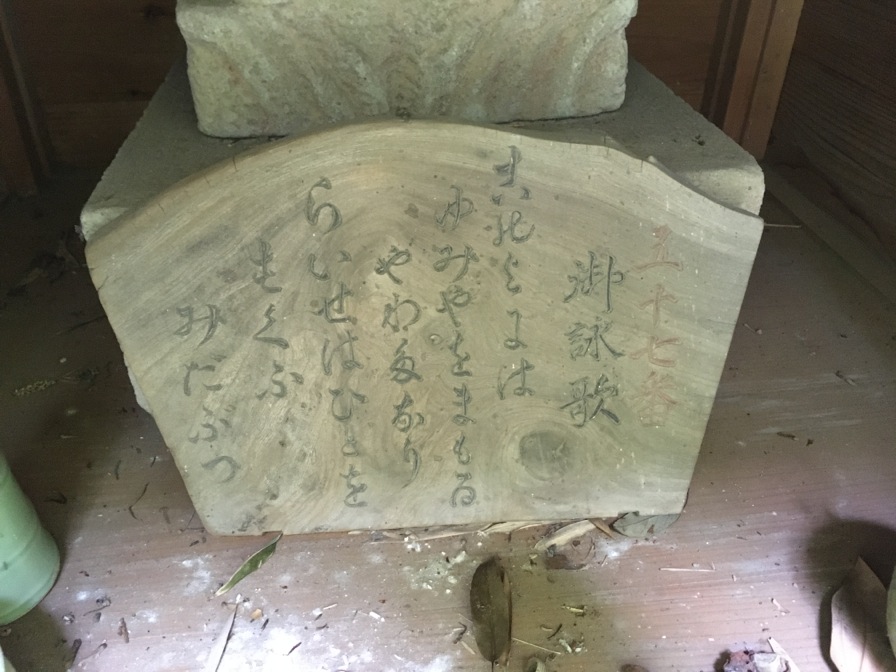 五十七番
御詠歌
このよには
ゆみやをまもる
やわたなり
らいせはひとを
すくふ
みだぶつ